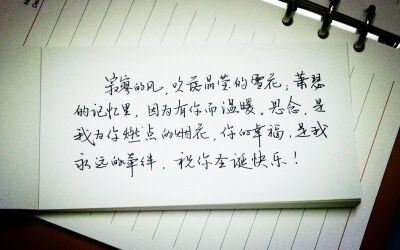 寂寞的风，吹落晶莹的雪花；萧瑟
的记忆里，因为有你而温暖。思念，是
我为你燃点的烟花，你的幸福，是我
永远的牵绊，祝你圣诞快乐！